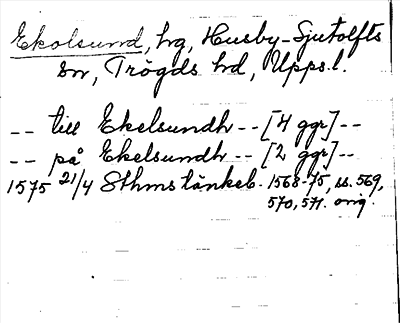 Ekolsund, hg, Husby-Sjutolfts
sn, Trögds hd, Upps.l.
-- till Ekelsundh -- [4 ggr] --
-- på Ekelsundh -- [2 ggr] --
1575 21/4 Sthms tänkeb. 1568-75, ss. 569,
570, 571. orig.